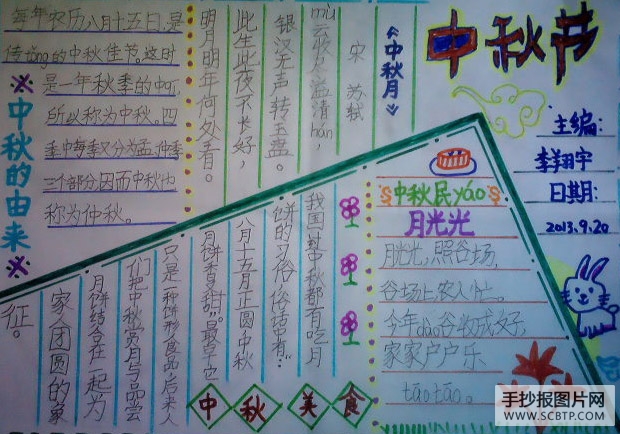 中秋节
主编:
李翔宇
日期:
2013.9.20
《中秋月》
宋 苏轼
mù云收尽溢清hán,
银汉无声转玉盘。
此生此夜不长好,
明月明年何处看。
※中秋的由来※
每年农历八月十五日,是
传tǒng的中秋佳节。这时
是一年秋季的中
所以称为中秋。四
季中每季又分为孟,仲,季
三个部分,因而中秋也
称为仲秋。
中秋民yáo
月光光
月光光,照谷场,
谷场上,农人忙。
今年dào谷收成好,
家家户户乐
tāo tāo。
中秋美食
我国过中秋都有吃月
饼的习俗,俗话有:“
八月十五月正圆中秋
月饼香又甜”。最早它
只是一种饼形食品,后来人
们把中秋赏月与品尝
月饼结合在一起为
家人团圆的象
征。
手抄报图片网
WWW.SCBTP.COM